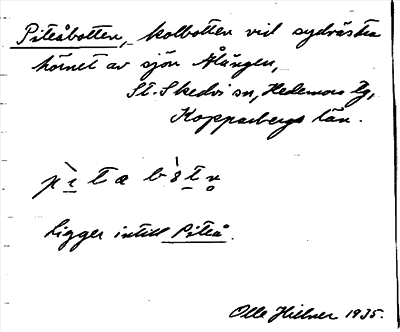 Piteåbotten, kolbotten vid sydvästra
hörnet av sjön Ålången,
St. Skedvi sn, Hedemora tg,
Kopparbergs län.
Ligger intill Piteå.
Olle Hillner 1935.